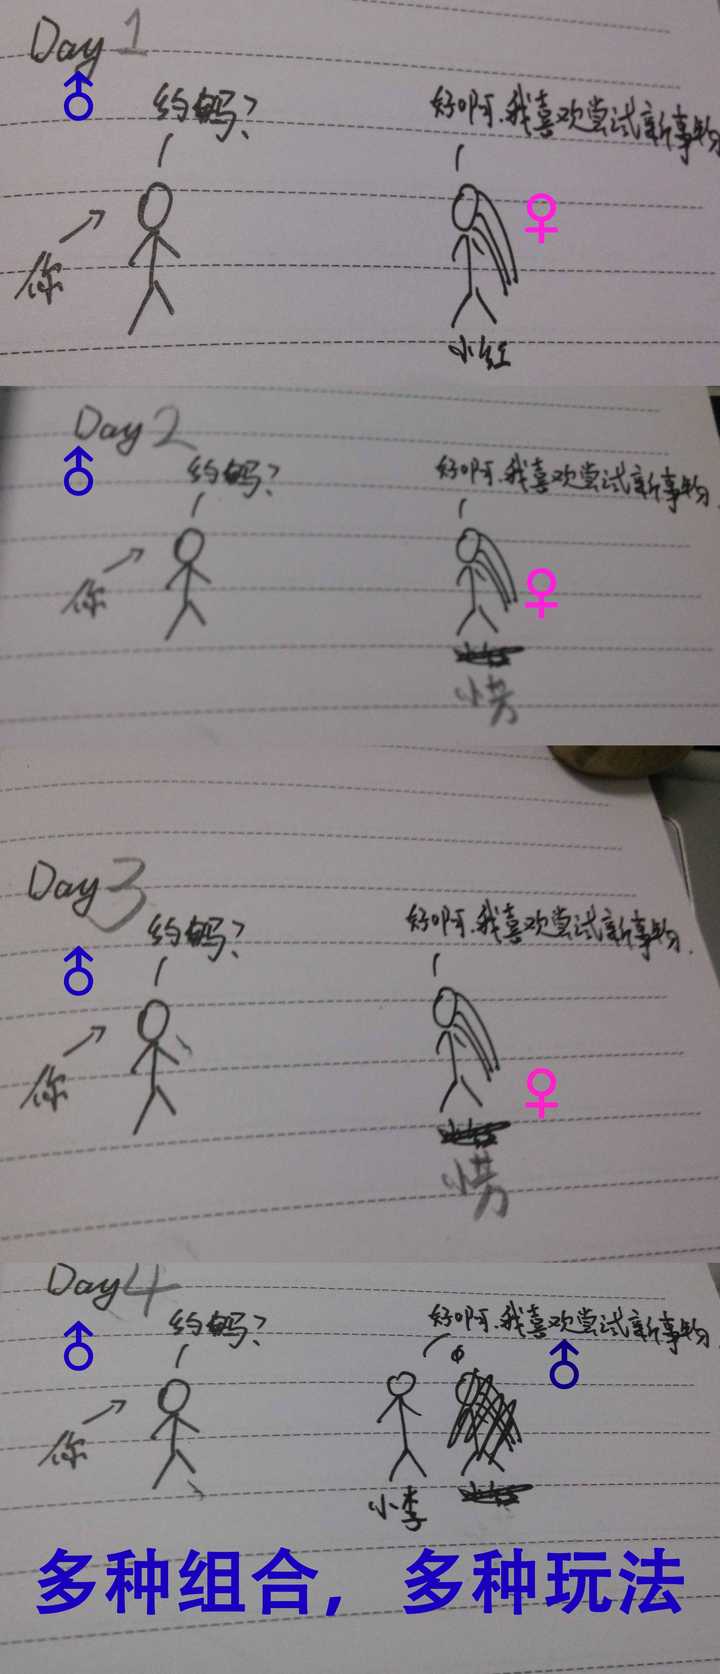 Day 1
约吗?
好啊.我喜欢尝试新事物
你
小红
Day 2
约吗?
好啊.我喜欢尝试新事物.
你
小芳
Day 3
约吗?
好啊.我喜欢尝试新事物.
你
小芳
Day 4
约吗?
好啊.我喜欢尝试新事物.
你
小李
多种组合，多种玩法